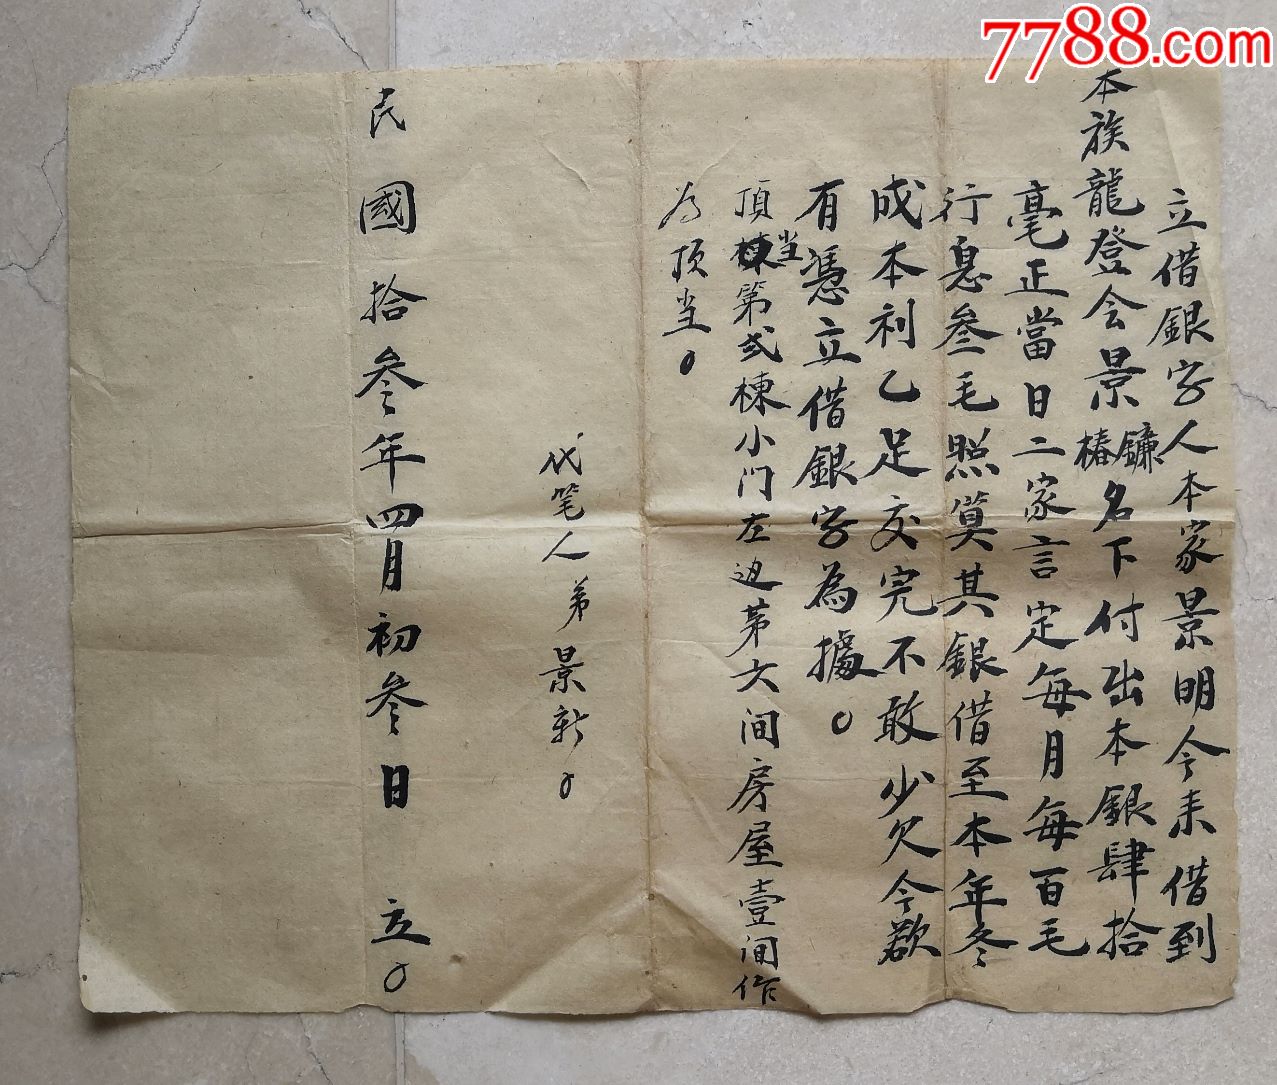 7788.com
立借銀字人本家景明今来借到
本族龍登会景椿鐮名下付出本銀肆拾
毫正當日二家言定每月每百毛
行息叁毛照算其銀借至本年冬
成本利乙足交完不敢少欠今欲
有憑立借銀字為據
頂当第弍棟小门左边苐六间房屋壹间作
为顶当
代笔人弟景新
民國拾叁年四月初叁日 立